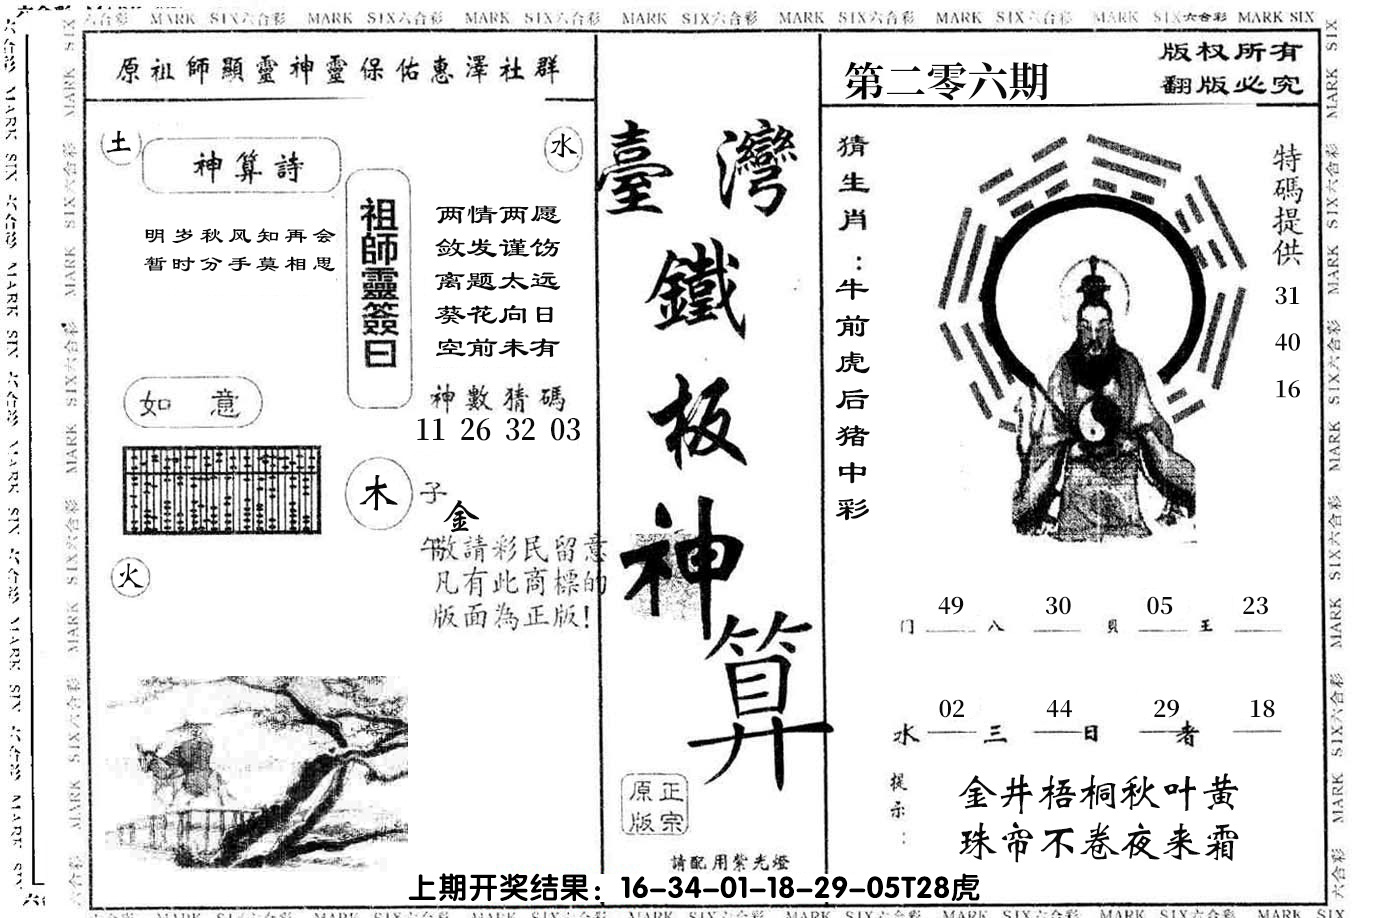 六合彩 MARK SIX六合彩 MARK SIX六合彩 MARK SIX六合彩 MARK SIX六合彩 MARK SIX六合彩 MARK SIX六合彩 MARK SIX六合彩 MARK SIX
原祖師顯靈神靈保佑惠澤社群
土
神算詩
水
明岁秋风知再会
暂时分手莫相思
祖師靈簽曰
两情两愿
敛发谨饬
离题太远
葵花向日
空前未有
如意
神數猜碼
11 26 32 03
木
子
金
午
火
敬請彩民留意
凡有此商標的
版面為正版!
臺灣
鐵
板
神
算
正宗
原版
請配用紫光燈
第二零六期
版权所有
翻版必究
猜生肖:牛前虎后猪中彩
特碼提供
31
40
16
49 30 05 23
门 八 貝 王
02 44 29 18
水 三 日 者
提示:
金井梧桐秋叶黄
珠帘不卷夜来霜
上期开奖结果：16-34-01-18-29-05T28虎